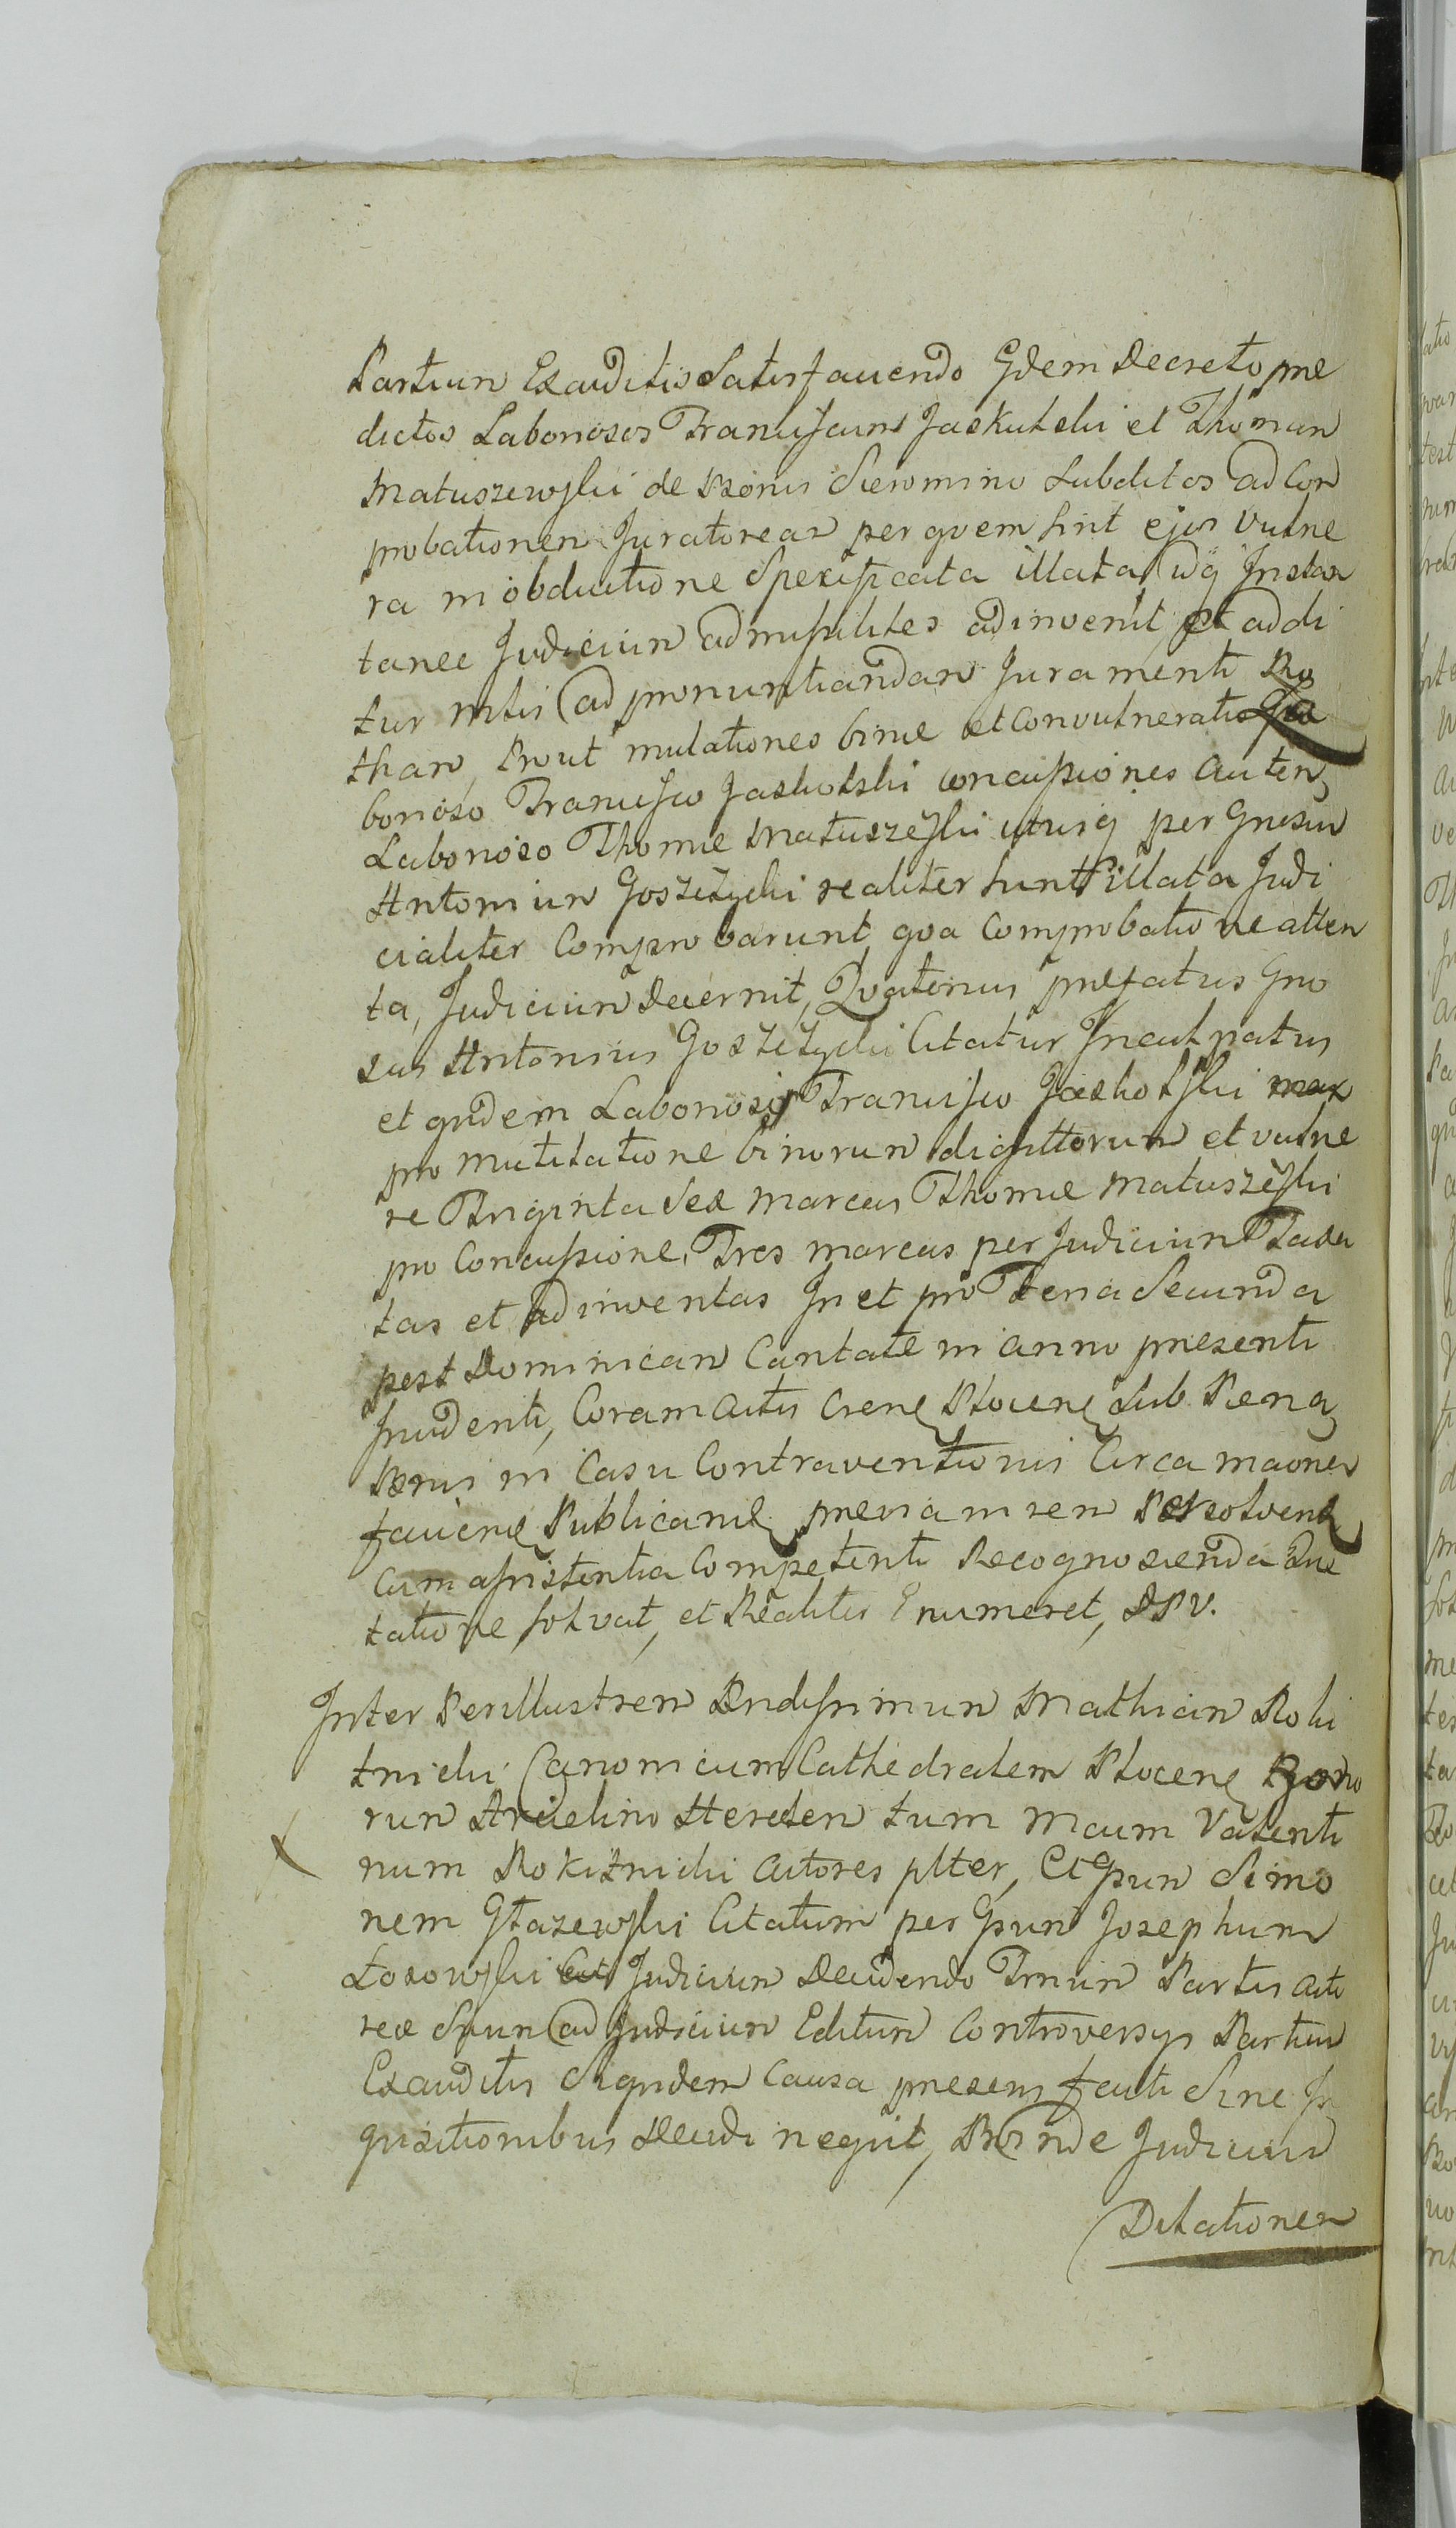 Partium Exauditis Satisfaciendo Eidem Decreto præ
dictos Laboriosos Franciscum Jaskulski et Thomam
Matuszewski de Bonis Sieromino Subditos ad Com
probationem Juratoream per quem sint ejus vulne
ra in obductione Specificata illata idq Instan
tanee Judicium admissibiles adinvenit, et addi
tur mtis ad pronuntiandam Juramenti Ro
tham, Prout mutilationes binæ et Convulneratio La
borioso Francisco Jaskolski concussiones autem
Laborioso Thomæ Matuszeski utrisq per Gnosum
Antonium Goszczycki realiter sunt illata Judi
cialiter Comprobarunt, qva Comprobatione atten
ta, Judicium Decernit, Qvatenus præfatus Gno
sus Antonius Goszczycki Citatur Inculpatus
et qvidem Laborioso Francisco Jaskolski
pro Mutilatione binorum digittorum et vulne
re Triginta Sex Marcas Thomæ Matuszeski
pro Concussione, Tres marcas per Judicium Taxa
tas et adinventas In et pro Feria Secunda
post Dominicam Cantate in anno præsenti
Incidenti, Coram Actis Crens Plocens Sub Pæna
Pænis in Casu Contraventionis Circa maones
faciens Publicans præviam rem Persolvens
Cum assistentia Competenti Recognoscenda Qvie
tatione solvat, et Realiter Enumeret, DPV.
Inter Perillustrem Rndissimum Mathiam Roki
tnicki Canonicum Cathedralem Plocens Bono
rum Arcielino Heredem tum Mcum Valenti
num Rokitnicki Actores plter, Et Gsum Simo
nem Głazewski Citatum per Gsum Josephum
Łosowski Judicium Decidendo Tmnum Partis Acto
reæ Suum ad Judicium Editum Controversys Partium
Exauditis Siqvidem Causa præsens facti Sine In
quisitionibus Decidi neqvit, Proinde Judicium
Dilationem